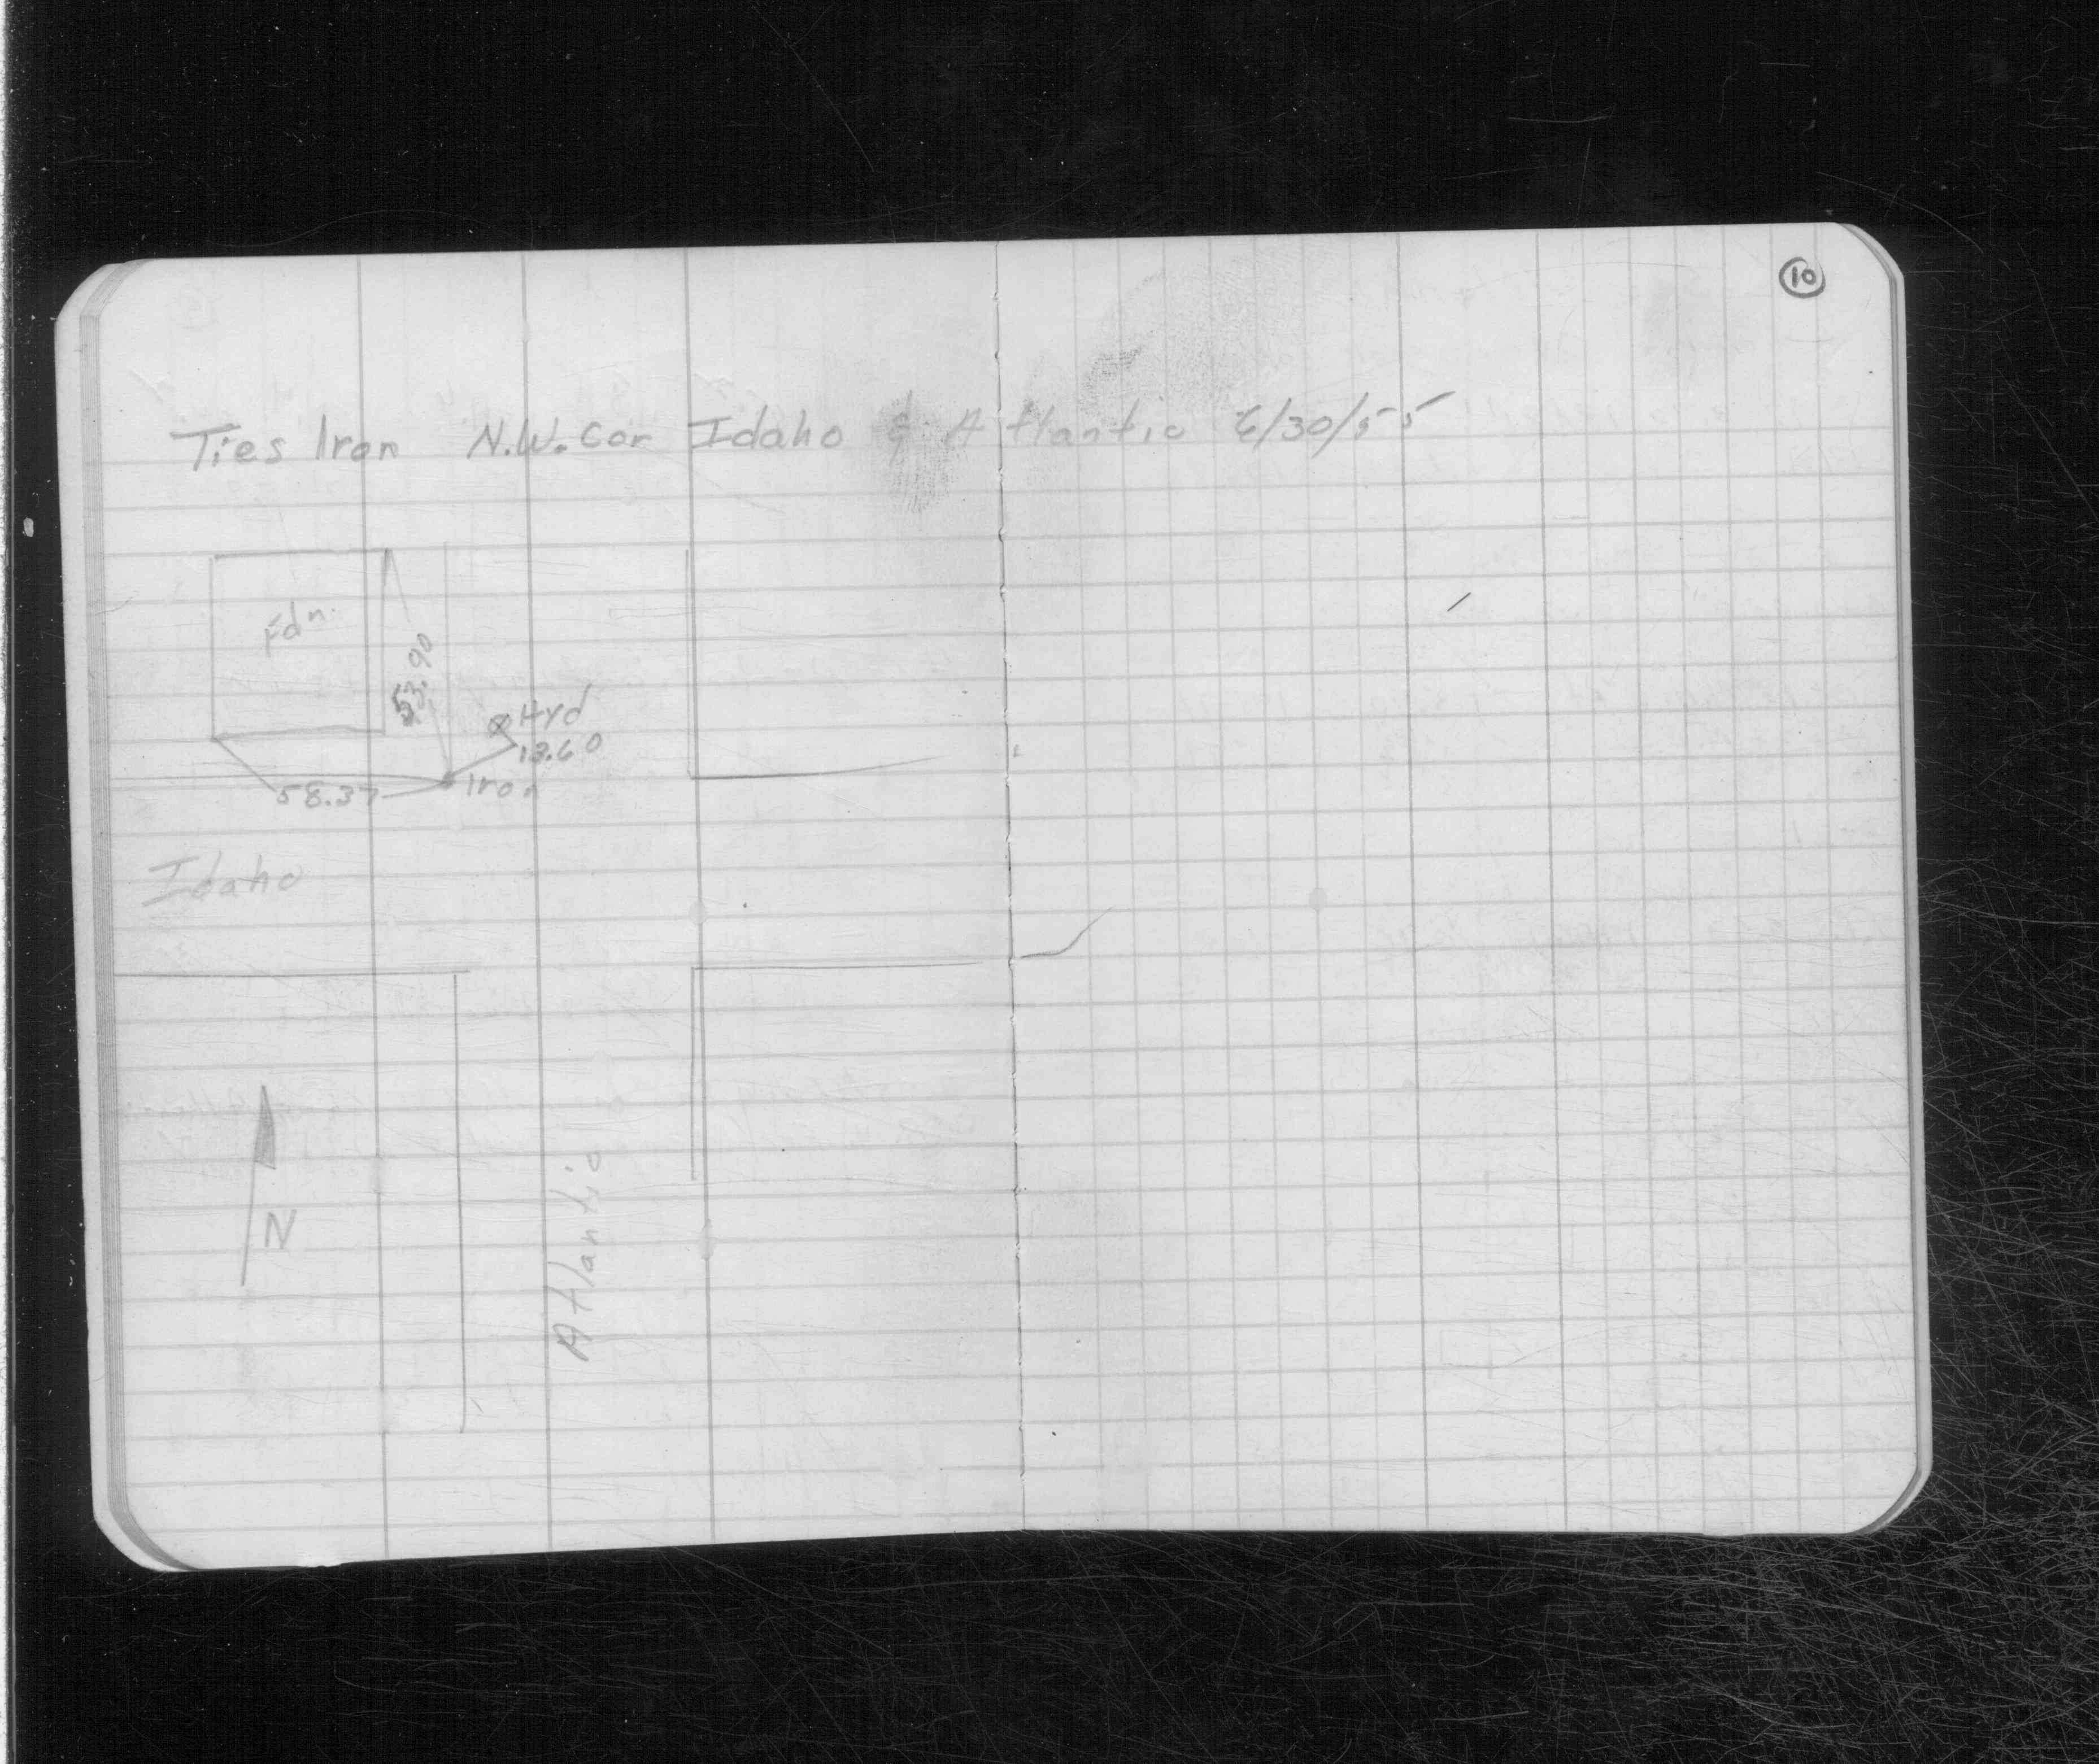 10
Ties Iron N.W. Cor Idaho & Atlantic 6/30/55
Fdn.
53.90
Hyd
13.60
58.37
Iron
Idaho
N
Atlantic